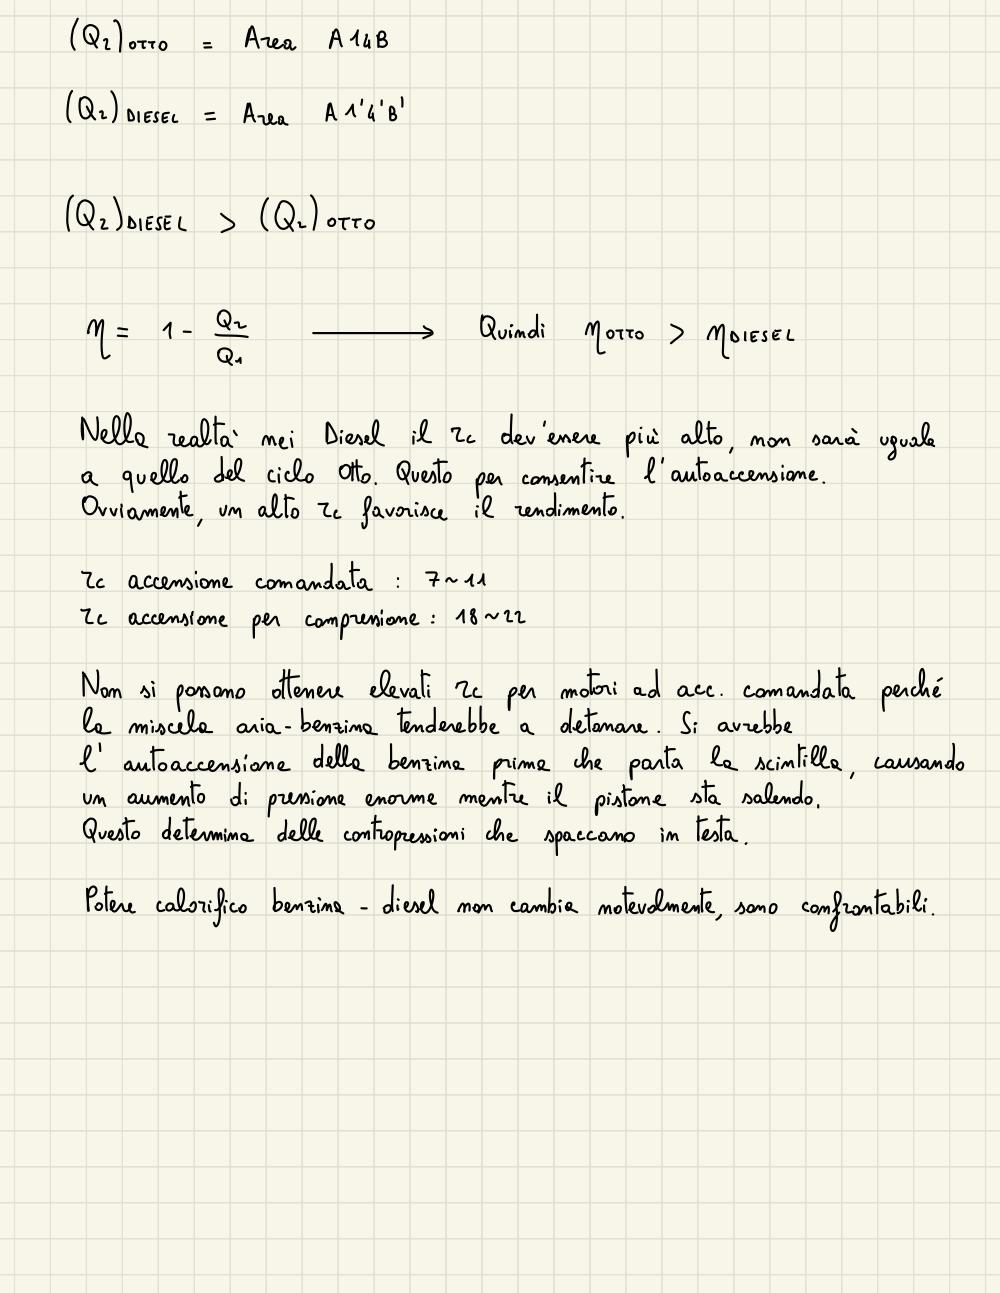 (Q₂) OTTO = Area A14B
(Q₂) DIESEL = Area A1'4'B'
(Q₂) DIESEL > (Q₂) OTTO
η = 1 - Q₂/Q₁ ⟶ Quindi η OTTO > η DIESEL
Nella realta' nei Diesel il rc dev'essere più alto, non sarà uguale
a quello del ciclo Otto. Questo per consentire l'autoaccensione.
Ovviamente, un alto rc favorisce il rendimento.
rc accensione comandata : 7~11
rc accensione per compressione : 18~22
Non si possono ottenere elevati rc per motori ad acc. comandata perché
la miscela aria-benzina tenderebbe a detonare. Si avrebbe
l'autoaccensione della benzina prima che parta la scintilla, causando
un aumento di pressione enorme mentre il pistone sta salendo.
Questo determina delle contropressioni che spaccano in testa.
Potere calorifico benzina - diesel non cambia notevolmente, sono confrontabili.